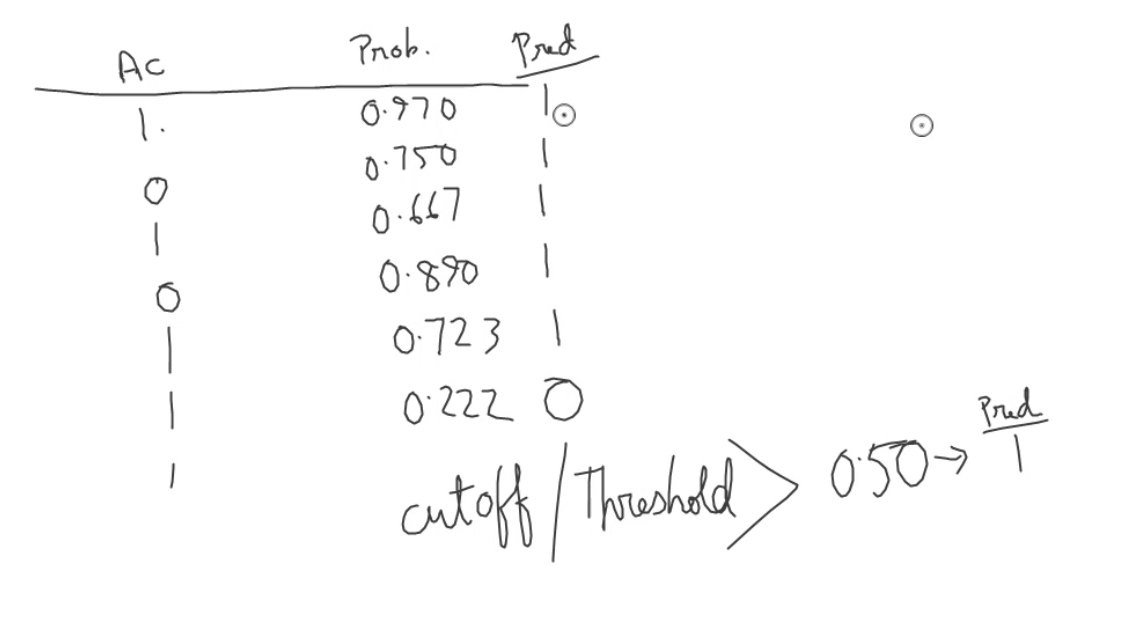 Ac Prob. Pred
1. 0.970 1
0 0.750 1
1 0.667 1
0 0.890 1
1 0.723 1
1 0.222 0
1
cutoff/Threshold > 0.50 → Pred 1